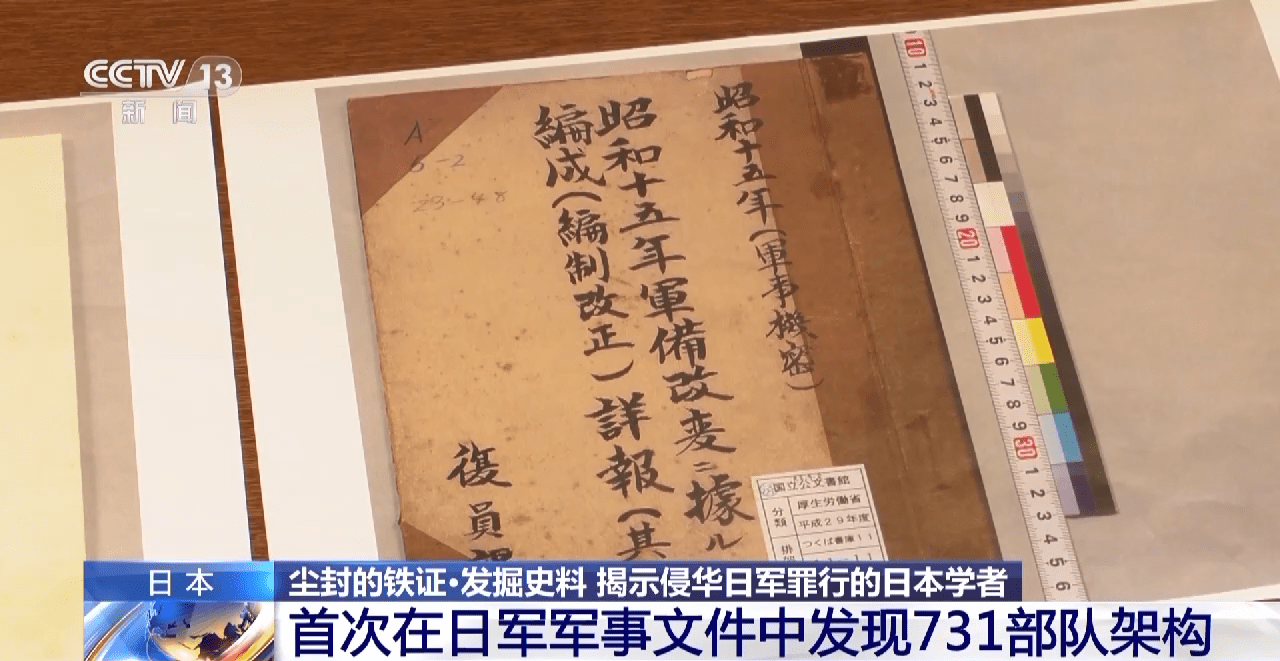 CCTV 13
新闻
昭和十五年(軍事機密)
昭和十五年軍備改変ニ據ル
編成(編制改正)詳報(其
復員
A
6-2
23-48
国立公文書館
分類
厚生労働省
平成29年度
つくば書庫11
排
10 1 2 3 4 5 6 7 8 9 20 1 2 3 4 5 6 7 8 9 30 1 2 3 4 5 6
日本
尘封的铁证·发掘史料 揭示侵华日军罪行的日本学者
首次在日军军事文件中发现731部队架构